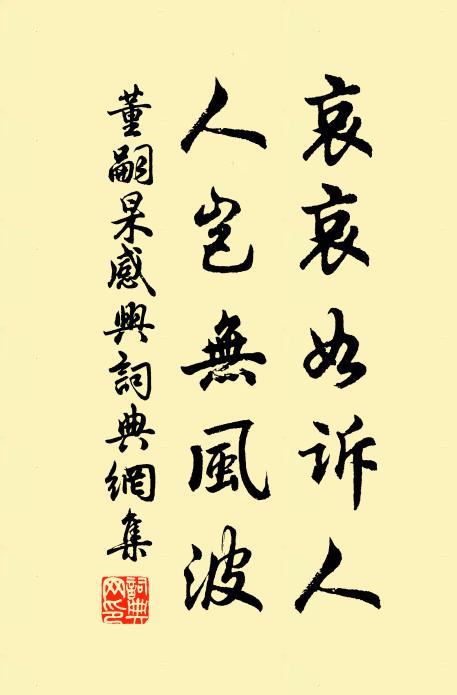 哀哀如訴人
人豈無風波
董嗣杲感興詞典網集
詞典網印